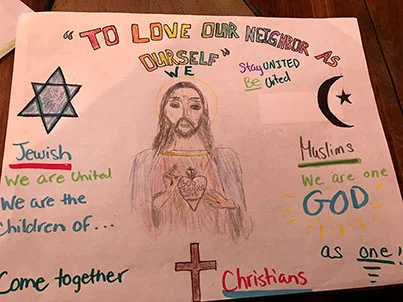 "TO LOVE OUR NEIGHBOR AS
OURSELF"
WE
Stay UNITED
Be United
Jewish
We are United
We are the
Children of...
Muslims
We are one
GOD
as one!
Come together
Christians